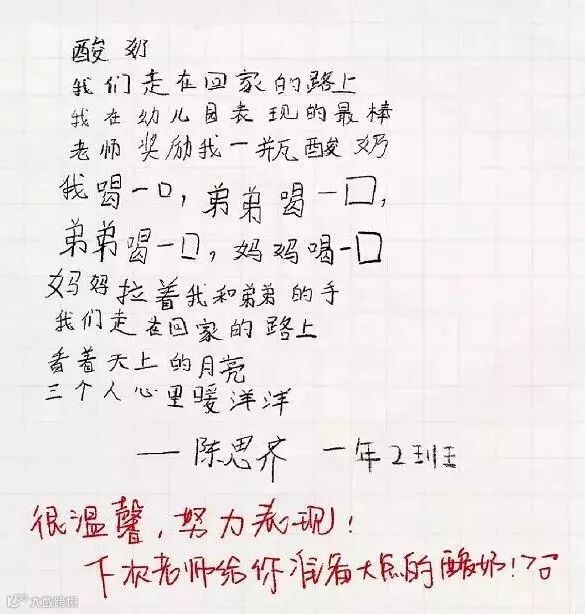 酸奶
我们走在回家的路上
我在幼儿园表现的最棒
老师奖励我一瓶酸奶
我喝一口,弟弟喝一口,
弟弟喝一口,妈妈喝一口
妈妈拉着我和弟弟的手
我们走在回家的路上
看着天上的月亮
三个人心里暖洋洋
——陈思齐 一年2班
很温馨,努力表现!
下次老师给你准备大点的酸奶!
大欧跨境